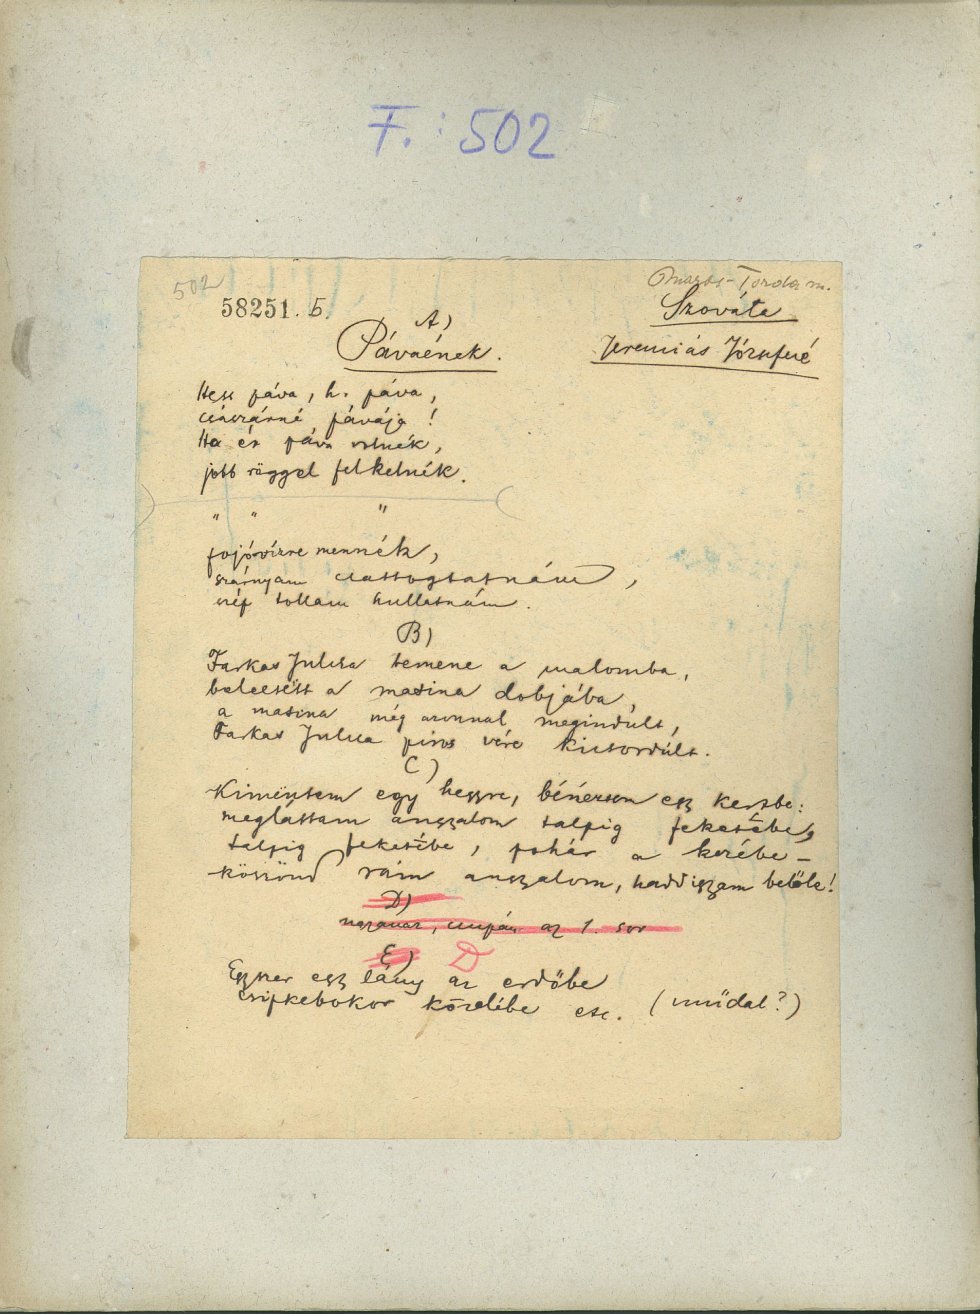 F. : 502
502
58251. b.
Maros-Torda m.
Szováta
Jeremiás Józsefné
A)
Pávaének.
Hess páva, h. páva,
császárné pávája!
Ha én páva volnék,
jobb röggel felkelnék.
" " "
fojóvízre mennék,
szárnyam csattogtatnám,
szép tollam hullatnám.
B)
Farkas Julcsa bemene a malomba,
beleesëtt a masina dobjába,
a masina még azonnal megindúlt,
Farkas Julcsa piros vére kicsordúlt.
C)
Kimëntem egy hegyre, bénéztem egy kertbe:
megláttam angyalom talpig feketébe,
talpig feketébe, pohár a kezébe –
köszönd rám angyalom, hadd igyam belőle!
D)
ugyanaz, csupán az 1. sor
E) D
Egyszer egy lány az erdőbe
csipkebokor közelébe etc. (műdal?)